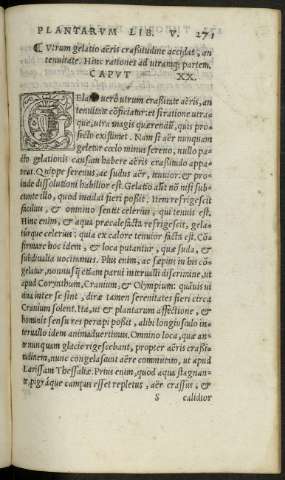 PLANTARVM LIB. V. 271
Vtrum gelatio aëris crassitudine accidat, an
tenuitate. Hinc rationes ad utranq; partem.
CAPVT XX.
GElatio uerò utrum crassitate aëris, an
tenuitate cōficiatur: et si ratione utra
que, utra magis quærendū, quis pro
fectò existimet. Nam si aër nunquam
geletur cœlo minus sereno, nullo pa
cto gelationis causam habere aëris crassitudo appa
reat. Quippe serenius, ac sudus aër, tenuior, & pro
inde dissolutioni habilior est. Gelatio aūt nō nisi sub
eunte illo, quod inualuit fieri possit. Item refrigescit
facilius, & omnino sentit celerius, qui tenuis est.
Hinc enim, & aqua præcalefacta refrigescit, gela-
turque celerius: quia ex calore tenuior facta est. Cō
firmare hoc idem, & loca putantur, quæ suda, &
subdiualia uocitamus. Plus enim, ac sæpius in his cō
gelatur, nonnunq̃ etiam parui interualli discrimine, ut
apud Corynthum, Cranium, & Olympium: quāuis ui
cina inter se sint, diræ tamen serenitates fieri circa
Cranium solent. Ita, ut & plantarum affectione, &
hominū sensu res percipi possit, alibi longiusculo in-
teruallo idem animaduertimus. Omnino loca, quæ an
te nunquam glacie rigescebant, propter aëris crassi-
tudinem, nunc congelascunt aëre commutato, ut apud
Larissam Thessaliæ. Prius enim, quod aqua stagnan-
te, pigráque campus esset repletus, aër crassus, &
S calidior